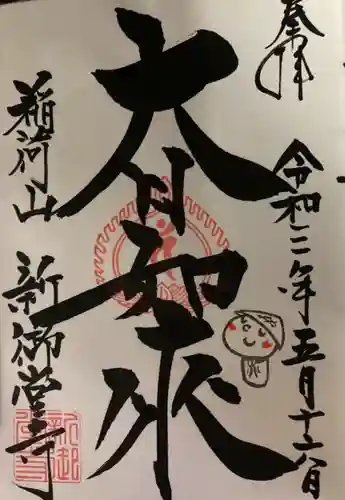 奉拝
令和三年五月十六日
大日如来
稲荷山
新御堂寺